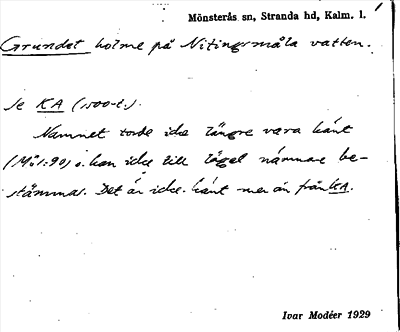 Mönsterås sn, Stranda hd, Kalm. l.
Grundet holme på Nitingsmåla vatten.
Se KA (1500-t.).
Namnet torde icke längre vara känt
(Mö 1:90) o. kan icke till läget närmare be-
stämmas. Det är icke känt mer än från KA.
Ivar Modéer 1929